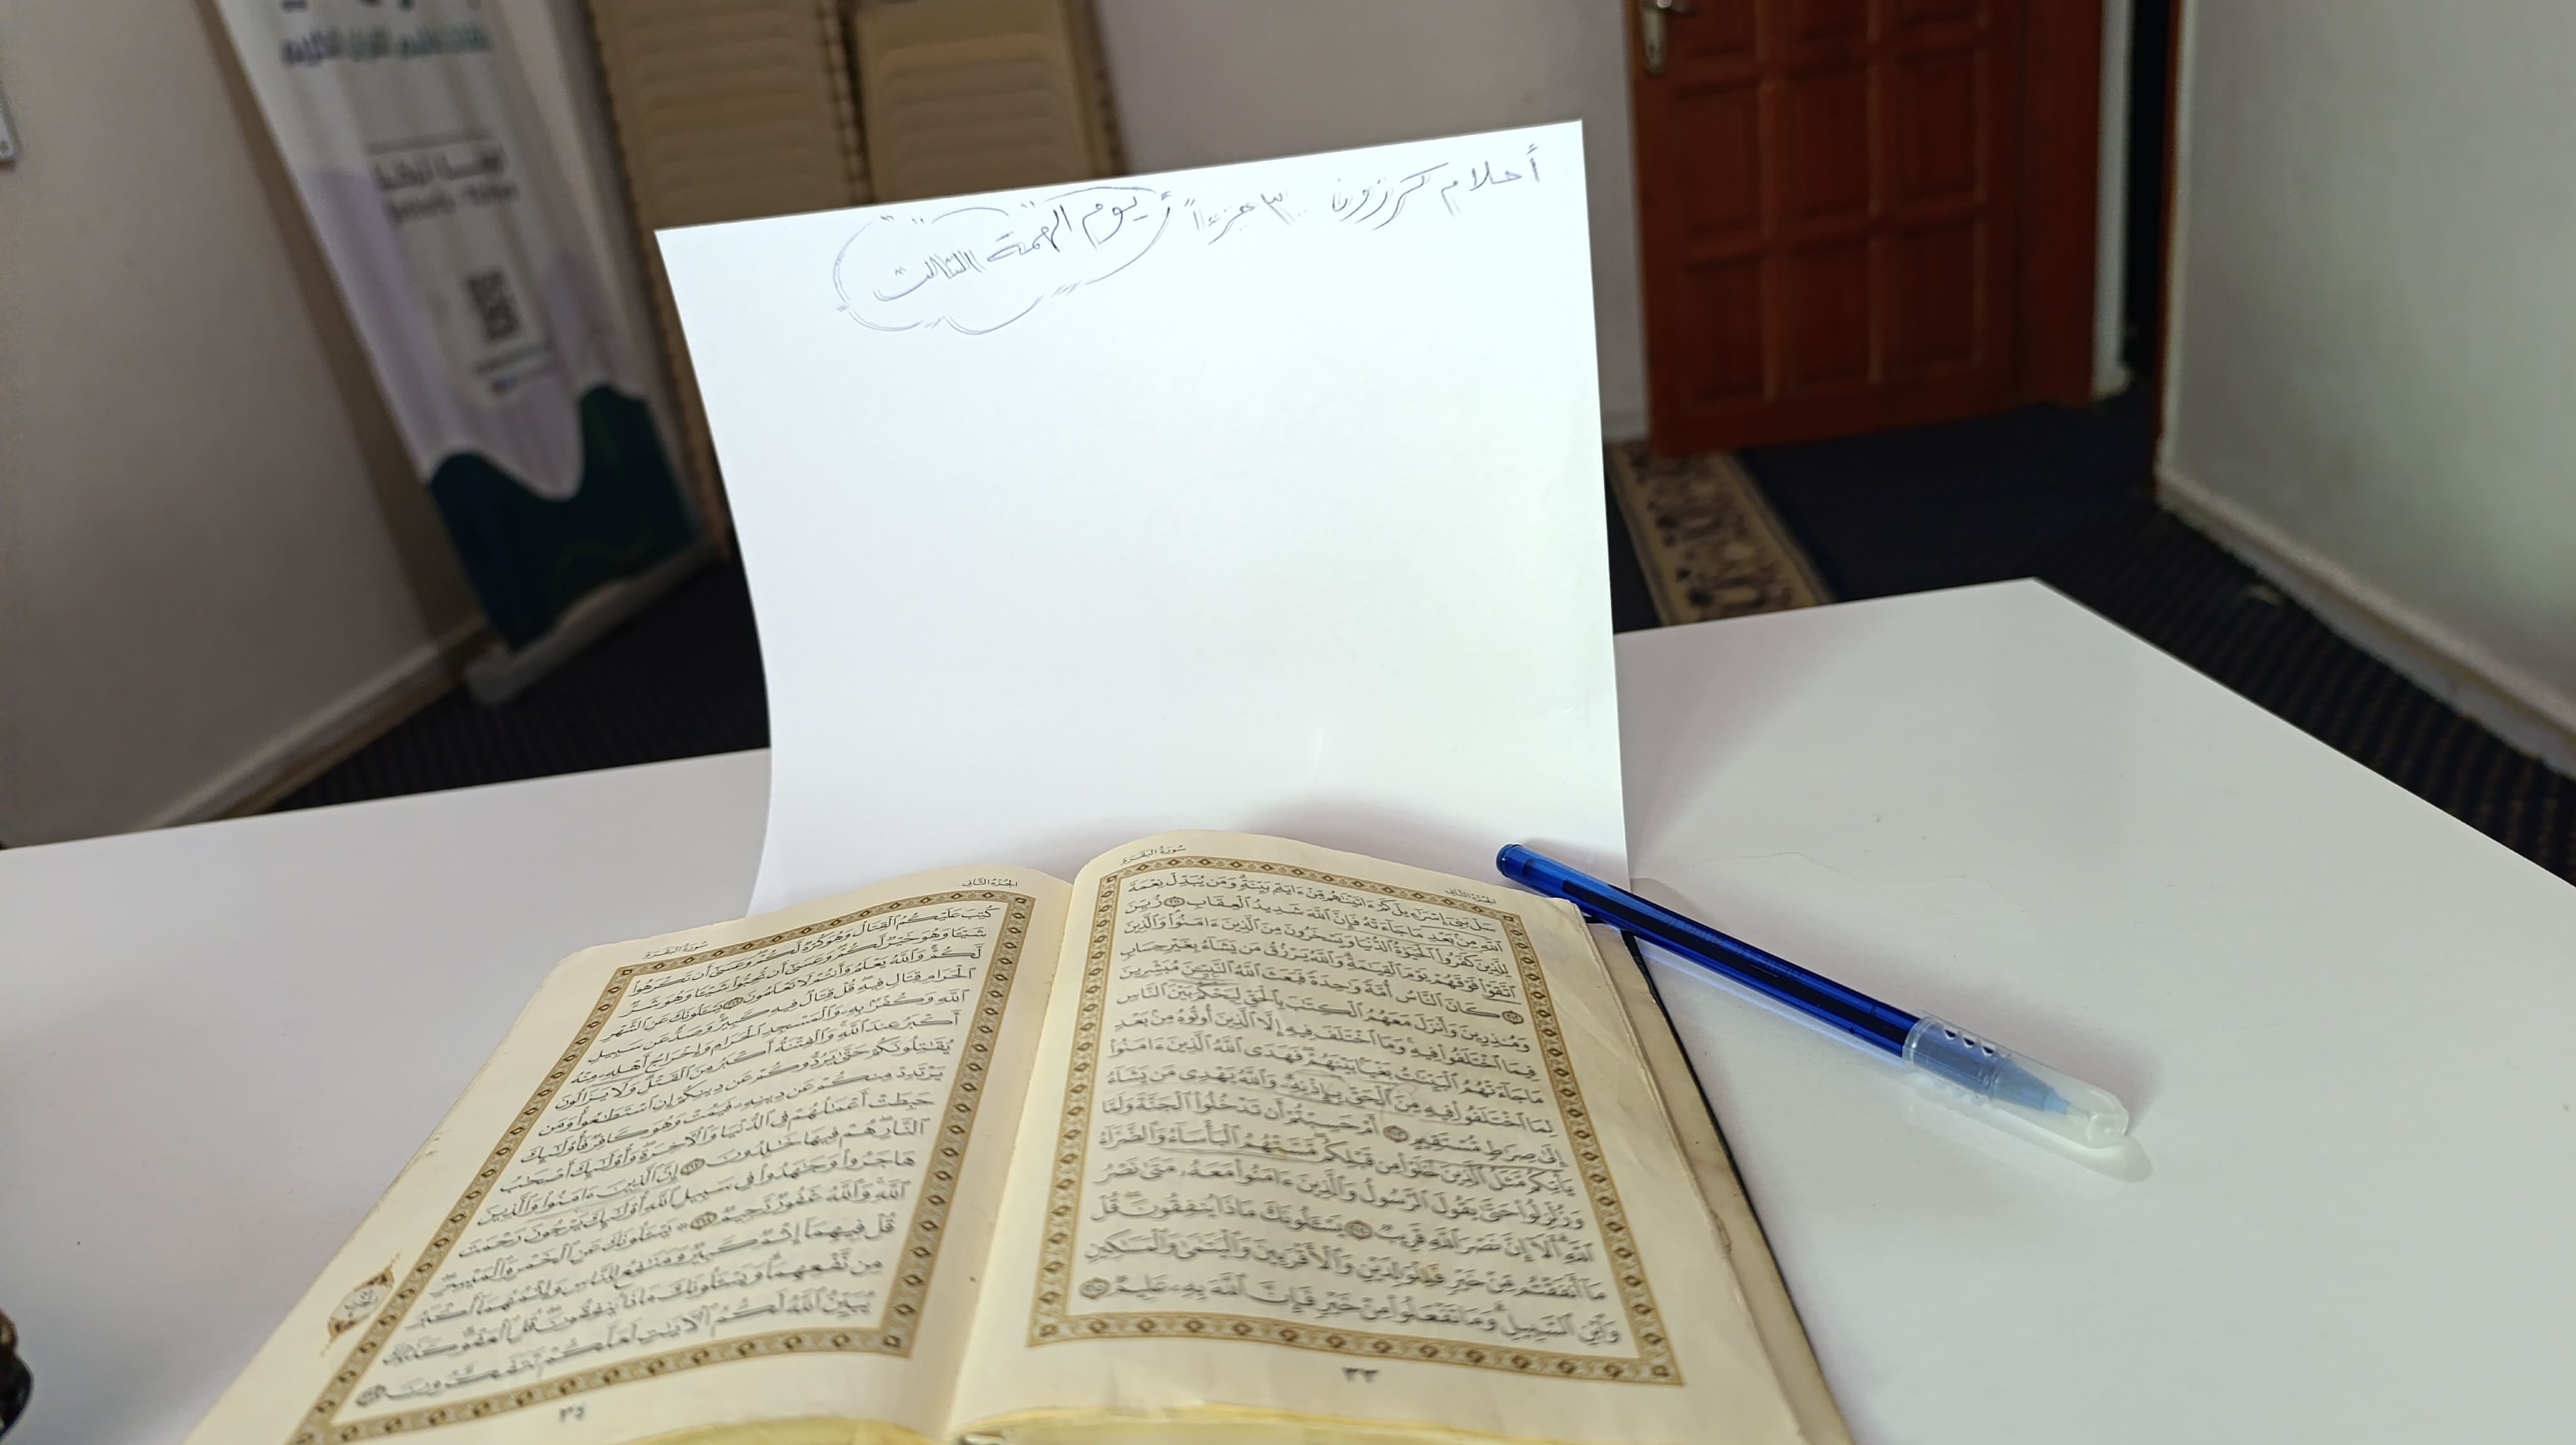 أحلام كرزون ٣٠ جزءاً
يوم الهمة الثالث
سورة البقرة
الجزء الثاني
سَلْ بَنِىٓ إِسْرَٰٓءِيلَ كَمْ ءَاتَيْنَٰهُم مِّنْ ءَايَةٍۭ بَيِّنَةٍ ۗ وَمَن يُبَدِّلْ نِعْمَةَ
ٱللَّهِ مِنۢ بَعْدِ مَا جَآءَتْهُ فَإِنَّ ٱللَّهَ شَدِيدُ ٱلْعِقَابِ ٢١١ زُيِّنَ
لِلَّذِينَ كَفَرُوا۟ ٱلْحَيَوٰةُ ٱلدُّنْيَا وَيَسْخَرُونَ مِنَ ٱلَّذِينَ ءَامَنُوا۟ ۘ وَٱلَّذِينَ
ٱتَّقَوْا۟ فَوْقَهُمْ يَوْمَ ٱلْقِيَٰمَةِ ۗ وَٱللَّهُ يَرْزُقُ مَن يَشَآءُ بِغَيْرِ حِسَابٍ
٢١٢ كَانَ ٱلنَّاسُ أُمَّةً وَٰحِدَةً فَبَعَثَ ٱللَّهُ ٱلنَّبِيِّۦنَ مُبَشِّرِينَ
وَمُنذِرِينَ وَأَنزَلَ مَعَهُمُ ٱلْكِتَٰبَ بِٱلْحَقِّ لِيَحْكُمَ بَيْنَ ٱلنَّاسِ
فِيمَا ٱخْتَلَفُوا۟ فِيهِ ۚ وَمَا ٱخْتَلَفَ فِيهِ إِلَّا ٱلَّذِينَ أُوتُوهُ مِنۢ بَعْدِ
مَا جَآءَتْهُمُ ٱلْبَيِّنَٰتُ بَغْيًۢا بَيْنَهُمْ ۖ فَهَدَى ٱللَّهُ ٱلَّذِينَ ءَامَنُوا۟
لِمَا ٱخْتَلَفُوا۟ فِيهِ مِنَ ٱلْحَقِّ بِإِذْنِهِۦ ۗ وَٱللَّهُ يَهْدِى مَن يَشَآءُ
إِلَىٰ صِرَٰطٍ مُّسْتَقِيمٍ ٢١٣ أَمْ حَسِبْتُمْ أَن تَدْخُلُوا۟ ٱلْجَنَّةَ وَلَمَّا
يَأْتِكُم مَّثَلُ ٱلَّذِينَ خَلَوْا۟ مِن قَبْلِكُم ۖ مَّسَّتْهُمُ ٱلْبَأْسَآءُ وَٱلضَّرَّآءُ
وَزُلْزِلُوا۟ حَتَّىٰ يَقُولَ ٱلرَّسُولُ وَٱلَّذِينَ ءَامَنُوا۟ مَعَهُۥ مَتَىٰ نَصْرُ
ٱللَّهِ ۗ أَلَآ إِنَّ نَصْرَ ٱللَّهِ قَرِيبٌ ٢١٤ يَسْـَٔلُونَكَ مَاذَا يُنفِقُونَ ۖ قُلْ
مَآ أَنفَقْتُم مِّنْ خَيْرٍ فَلِلْوَٰلِدَيْنِ وَٱلْأَقْرَبِينَ وَٱلْيَتَٰمَىٰ وَٱلْمَسَٰكِينِ
وَٱبْنِ ٱلسَّبِيلِ ۗ وَمَا تَفْعَلُوا۟ مِنْ خَيْرٍ فَإِنَّ ٱللَّهَ بِهِۦ عَلِيمٌ ٢١٥
٣٣
الجزء الثاني
سورة البقرة
كُتِبَ عَلَيْكُمُ ٱلْقِتَالُ وَهُوَ كُرْهٌ لَّكُمْ ۖ وَعَسَىٰٓ أَن تَكْرَهُوا۟
شَيْـًٔا وَهُوَ خَيْرٌ لَّكُمْ ۖ وَعَسَىٰٓ أَن تُحِبُّوا۟ شَيْـًٔا وَهُوَ شَرٌّ
لَّكُمْ ۗ وَٱللَّهُ يَعْلَمُ وَأَنتُمْ لَا تَعْلَمُونَ ٢١٦ يَسْـَٔلُونَكَ عَنِ ٱلشَّهْرِ
ٱلْحَرَامِ قِتَالٍ فِيهِ ۖ قُلْ قِتَالٌ فِيهِ كَبِيرٌ ۖ وَصَدٌّ عَن سَبِيلِ
ٱللَّهِ وَكُفْرٌۢ بِهِۦ وَٱلْمَسْجِدِ ٱلْحَرَامِ وَإِخْرَاجُ أَهْلِهِۦ مِنْهُ
أَكْبَرُ عِندَ ٱللَّهِ ۚ وَٱلْفِتْنَةُ أَكْبَرُ مِنَ ٱلْقَتْلِ ۗ وَلَا يَزَالُونَ
يُقَٰتِلُونَكُمْ حَتَّىٰ يَرُدُّوكُمْ عَن دِينِكُمْ إِنِ ٱسْتَطَٰعُوا۟ ۚ وَمَن
يَرْتَدِدْ مِنكُمْ عَن دِينِهِۦ فَيَمُتْ وَهُوَ كَافِرٌ فَأُو۟لَٰٓئِكَ
حَبِطَتْ أَعْمَٰلُهُمْ فِى ٱلدُّنْيَا وَٱلْـَٔاخِرَةِ ۖ وَأُو۟لَٰٓئِكَ أَصْحَٰبُ
ٱلنَّارِ ۖ هُمْ فِيهَا خَٰلِدُونَ ٢١٧ إِنَّ ٱلَّذِينَ ءَامَنُوا۟ وَٱلَّذِينَ
هَاجَرُوا۟ وَجَٰهَدُوا۟ فِى سَبِيلِ ٱللَّهِ أُو۟لَٰٓئِكَ يَرْجُونَ رَحْمَتَ
ٱللَّهِ ۚ وَٱللَّهُ غَفُورٌ رَّحِيمٌ ٢١٨ يَسْـَٔلُونَكَ عَنِ ٱلْخَمْرِ وَٱلْمَيْسِرِ ۖ
قُلْ فِيهِمَآ إِثْمٌ كَبِيرٌ وَمَنَٰفِعُ لِلنَّاسِ وَإِثْمُهُمَآ أَكْبَرُ
مِن نَّفْعِهِمَا ۗ وَيَسْـَٔلُونَكَ مَاذَا يُنفِقُونَ قُلِ ٱلْعَفْوَ ۗ كَذَٰلِكَ
يُبَيِّنُ ٱللَّهُ لَكُمُ ٱلْـَٔايَٰتِ لَعَلَّكُمْ تَتَفَكَّرُونَ ٢١٩
٣٤